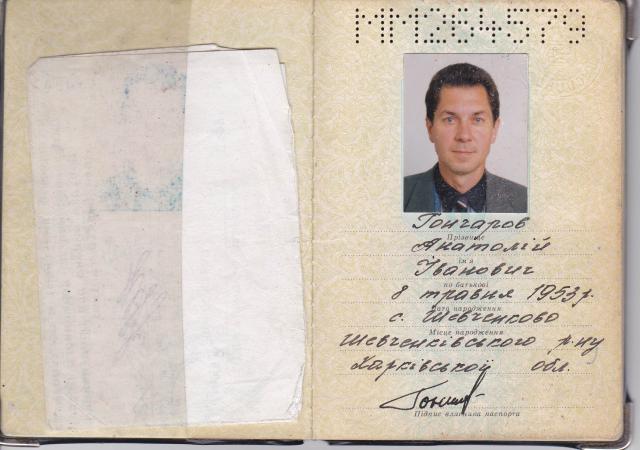 ММ264579
Гончаров
Прізвище
Анатолій
ім'я
Іванович
по батькові
8 травня 1953 р.
Дата народження
с. Шевченково
Місце народження
Шевченківського р-ну
Харківської обл.
Підпис власника паспорта